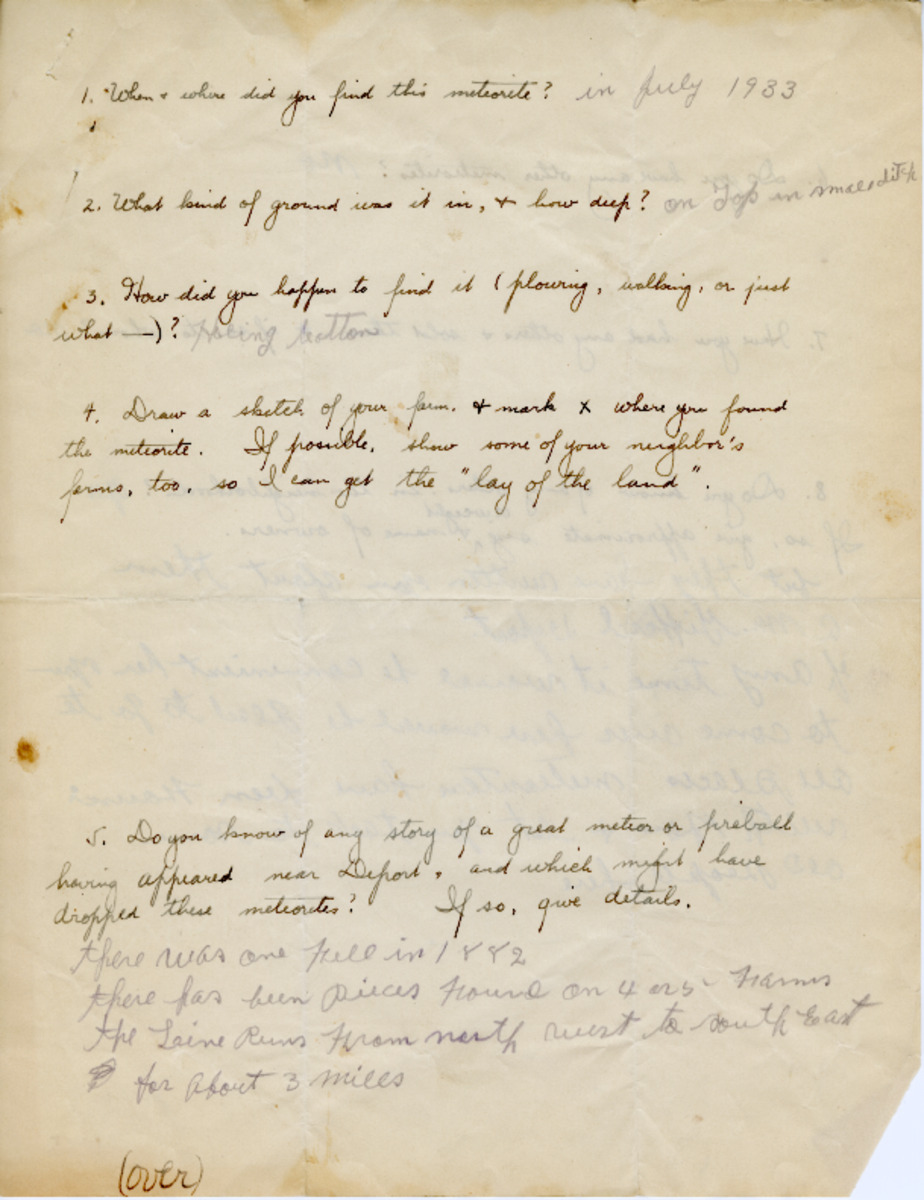 1. When & where did you find this meteorite? in July 1933
2. What kind of ground was it in, & how deep? on Top in small ditch
3. How did you happen to find it (plowing, walking, or just
what —)? Hoeing Cotton
4. Draw a sketch of your farm, & mark x where you found
the meteorite. If possible, show some of your neighbor's
farms, too, so I can get the "lay of the land".
5. Do you know of any story of a great meteor or fireball
having appeared near Deport, and which might have
dropped these meteorites? If so, give details.
there was one fell in 1882
there has been pieces Found on 4 or 5 Farms
the Line Runs From north west to south East
for About 3 miles
(over)